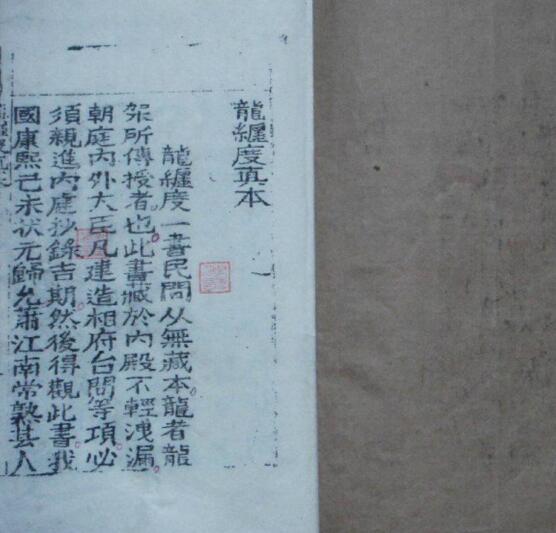 龍纏度真本
龍纏度一書民間从無藏本龍者龍
架所傳授者也此書藏於內殿不輕洩漏
朝庭內外大臣凡建造相府台閣等項必
須親進內庭抄錄吉期然後得觀此書我
國康熙己未狀元歸允肅江南常熟县人